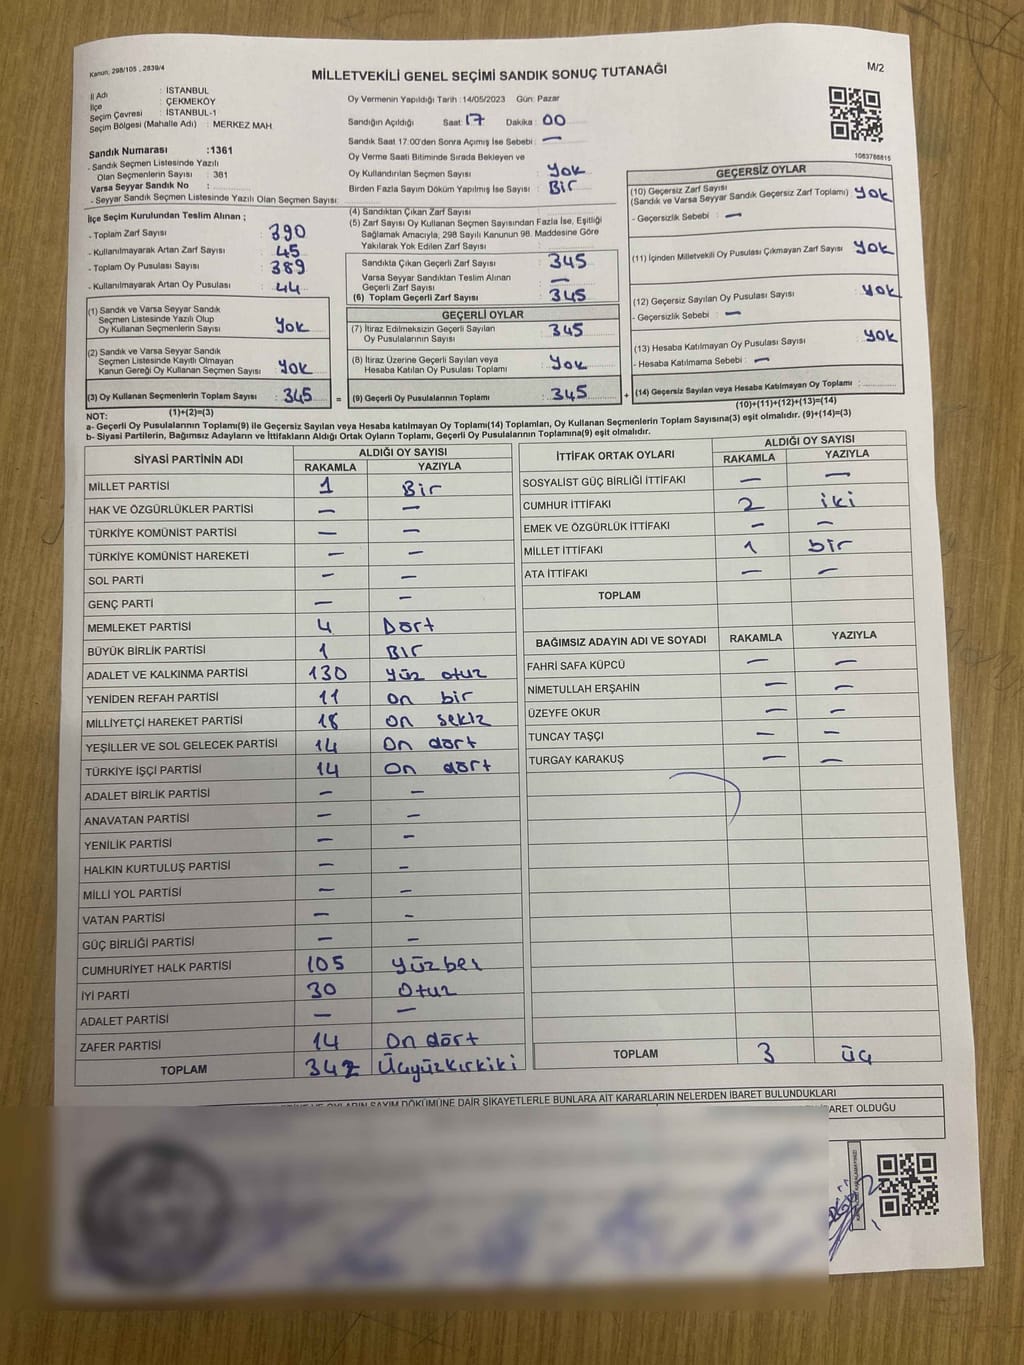 Kanun, 298/105 , 2839/4
MİLLETVEKİLİ GENEL SEÇİMİ SANDIK SONUÇ TUTANAĞI
M/2
İl Adı : İSTANBUL
İlçe : ÇEKMEKÖY
Seçim Çevresi : İSTANBUL-1
Seçim Bölgesi (Mahalle Adı) : MERKEZ MAH.
Sandık Numarası :1361
- Sandık Seçmen Listesinde Yazılı
Olan Seçmenlerin Sayısı : 381
Varsa Seyyar Sandık No :
- Seyyar Sandık Seçmen Listesinde Yazılı Olan Seçmen Sayısı:
Oy Vermenin Yapıldığı Tarih :14/05/2023 Gün: Pazar
Sandığın Açıldığı Saat: 17 Dakika: 00
Sandık Saat 17:00'den Sonra Açımış İse Sebebi : —
Oy Verme Saati Bitiminde Sırada Bekleyen ve
Oy Kullandırılan Seçmen Sayısı : Yok
Birden Fazla Sayım Döküm Yapılmış İse Sayısı : Bir
1063786615
İlçe Seçim Kurulundan Teslim Alınan ;
- Toplam Zarf Sayısı : 390
- Kullanılmayarak Artan Zarf Sayısı : 45
- Toplam Oy Pusulası Sayısı : 389
- Kullanılmayarak Artan Oy Pusulası : 44
(1) Sandık ve Varsa Seyyar Sandık
Seçmen Listesinde Yazılı Olup
Oy Kullanan Seçmenlerin Sayısı : Yok
(2) Sandık ve Varsa Seyyar Sandık
Seçmen Listesinde Kayıtlı Olmayan
Kanun Gereği Oy Kullanan Seçmen Sayısı : Yok
(3) Oy Kullanan Seçmenlerin Toplam Sayısı : 345 =
(1)+(2)=(3)
(4) Sandıktan Çıkan Zarf Sayısı :
(5) Zarf Sayısı Oy Kullanan Seçmen Sayısından Fazla İse, Eşitliği
Sağlamak Amacıyla, 298 Sayılı Kanunun 98. Maddesine Göre
Yakılarak Yok Edilen Zarf Sayısı :
Sandıkta Çıkan Geçerli Zarf Sayısı : 345
Varsa Seyyar Sandıktan Teslim Alınan
Geçerli Zarf Sayısı : —
(6) Toplam Geçerli Zarf Sayısı : 345
GEÇERLİ OYLAR
(7) İtiraz Edilmeksizin Geçerli Sayılan
Oy Pusulalarının Sayısı : 345
(8) İtiraz Üzerine Geçerli Sayılan veya
Hesaba Katılan Oy Pusulası Toplamı : Yok
(9) Geçerli Oy Pusulalarının Toplamı : 345 +
GEÇERSİZ OYLAR
(10) Geçersiz Zarf Sayısı
(Sandık ve Varsa Seyyar Sandık Geçersiz Zarf Toplamı) : Yok
- Geçersizlik Sebebi : —
(11) İçinden Milletvekili Oy Pusulası Çıkmayan Zarf Sayısı : Yok
(12) Geçersiz Sayılan Oy Pusulası Sayısı : Yok
- Geçersizlik Sebebi : —
(13) Hesaba Katılmayan Oy Pusulası Sayısı : Yok
- Hesaba Katılmama Sebebi : —
(14) Geçersiz Sayılan veya Hesaba Katılmayan Oy Toplamı :
(10)+(11)+(12)+(13)=(14)
NOT:
a- Geçerli Oy Pusulalarının Toplamı(9) ile Geçersiz Sayılan veya Hesaba katılmayan Oy Toplamı(14) Toplamları, Oy Kullanan Seçmenlerin Toplam Sayısına(3) eşit olmalıdır. (9)+(14)=(3)
b- Siyasi Partilerin, Bağımsız Adayların ve İttifakların Aldığı Ortak Oyların Toplamı, Geçerli Oy Pusulalarının Toplamına(9) eşit olmalıdır.
SİYASİ PARTİNİN ADI ALDIĞI OY SAYISI
RAKAMLA YAZIYLA
MİLLET PARTİSİ 1 Bir
HAK VE ÖZGÜRLÜKLER PARTİSİ — —
TÜRKİYE KOMÜNİST PARTİSİ — —
TÜRKİYE KOMÜNİST HAREKETİ — —
SOL PARTİ — —
GENÇ PARTİ — —
MEMLEKET PARTİSİ 4 Dört
BÜYÜK BİRLİK PARTİSİ 1 BİR
ADALET VE KALKINMA PARTİSİ 130 yüz otuz
YENİDEN REFAH PARTİSİ 11 on bir
MİLLİYETÇİ HAREKET PARTİSİ 18 on sekiz
YEŞİLLER VE SOL GELECEK PARTİSİ 14 On dört
TÜRKİYE İŞÇİ PARTİSİ 14 On dört
ADALET BİRLİK PARTİSİ — —
ANAVATAN PARTİSİ — —
YENİLİK PARTİSİ — —
HALKIN KURTULUŞ PARTİSİ — —
MİLLİ YOL PARTİSİ — —
VATAN PARTİSİ — —
GÜÇ BİRLİĞİ PARTİSİ — —
CUMHURİYET HALK PARTİSİ 105 Yüzbeş
İYİ PARTİ 30 Otuz
ADALET PARTİSİ — —
ZAFER PARTİSİ 14 On dört
TOPLAM 342 Üçyüzkırkiki
İTTİFAK ORTAK OYLARI ALDIĞI OY SAYISI
RAKAMLA YAZIYLA
SOSYALİST GÜÇ BİRLİĞİ İTTİFAKI — —
CUMHUR İTTİFAKI 2 iki
EMEK VE ÖZGÜRLÜK İTTİFAKI — —
MİLLET İTTİFAKI 1 bir
ATA İTTİFAKI — —
TOPLAM
BAĞIMSIZ ADAYIN ADI VE SOYADI RAKAMLA YAZIYLA
FAHRİ SAFA KÜPCÜ — —
NİMETULLAH ERŞAHİN — —
ÜZEYFE OKUR — —
TUNCAY TAŞÇI — —
TURGAY KARAKUŞ — —
TOPLAM 3 üç
OYLARIN SAYIM DÖKÜMÜNE DAİR ŞİKAYETLERLE BUNLARA AİT KARARLARIN NELERDEN İBARET BULUNDUKLARI
İBARET OLDUĞU